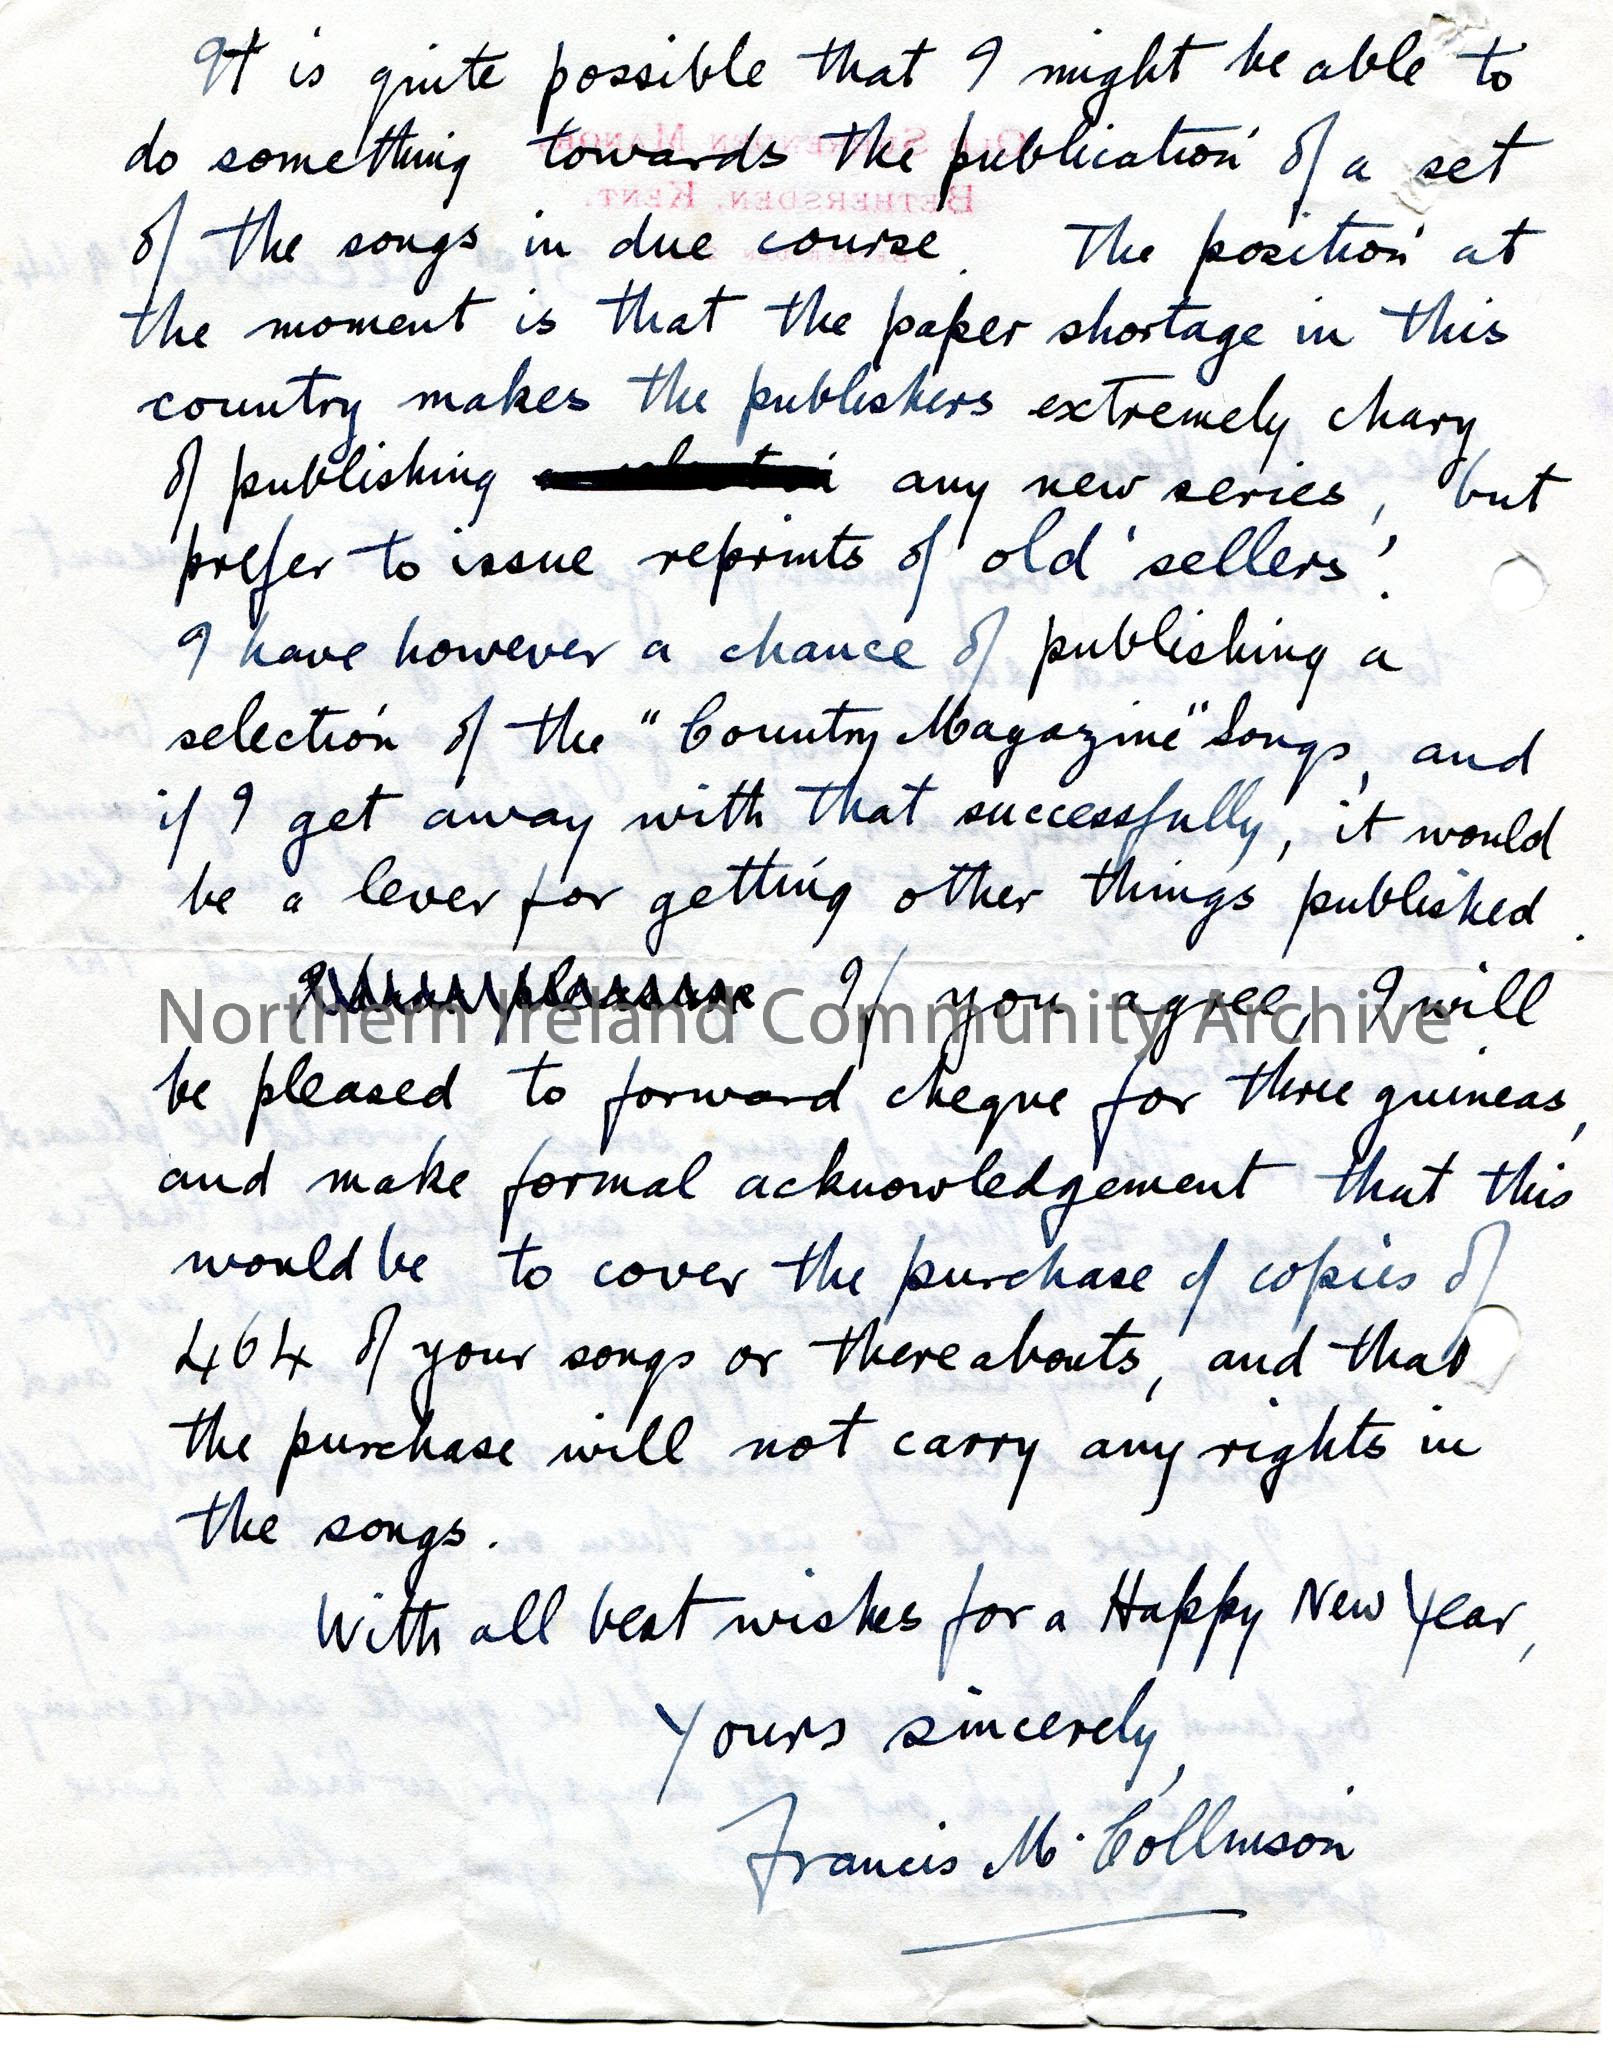 It is quite possible that I might be able to
do something towards the publication of a set
of the songs in due course. The position at
the moment is that the paper shortage in this
country makes the publishers extremely chary
of publishing any new series, but
prefer to issue reprints of old 'sellers'.
I have however a chance of publishing a
selection of the "Country Magazine" Songs, and
if I get away with that successfully, it would
be a lever for getting other things published.
If you agree, I will
Northern Ireland Community Archive
be pleased to forward cheque for three guineas,
and make formal acknowledgement that this
would be to cover the purchase of copies of
464 of your songs or thereabouts, and that
the purchase will not carry any rights in
the songs.
With all best wishes for a Happy New Year,
Yours sincerely,
Francis M. Collinson